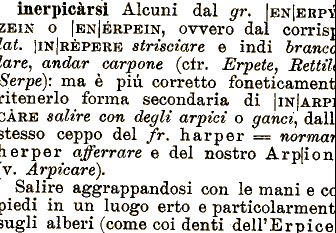 inerpicàrsi Alcuni dal gr. |EN|ERPỲ
ZEIN o |EN|ÉRPEIN, ovvero dal corrisp
lat. |IN|RÈPERE strisciare e indi branco
lare, andar carpone (cfr. Erpete, Rettil
Serpe): ma è piú corretto foneticament
ritenerlo forma secondaria di |IN|ARP
CÀRE salire con degli arpici o ganci, dall
stesso ceppo del fr. harper = norman
herper afferrare e del nostro Arp|ion
(v. Arpicare).
Salire aggrappandosi con le mani e co
piedi in un luogo erto e particolarment
sugli alberi (come coi denti dell'Erpice